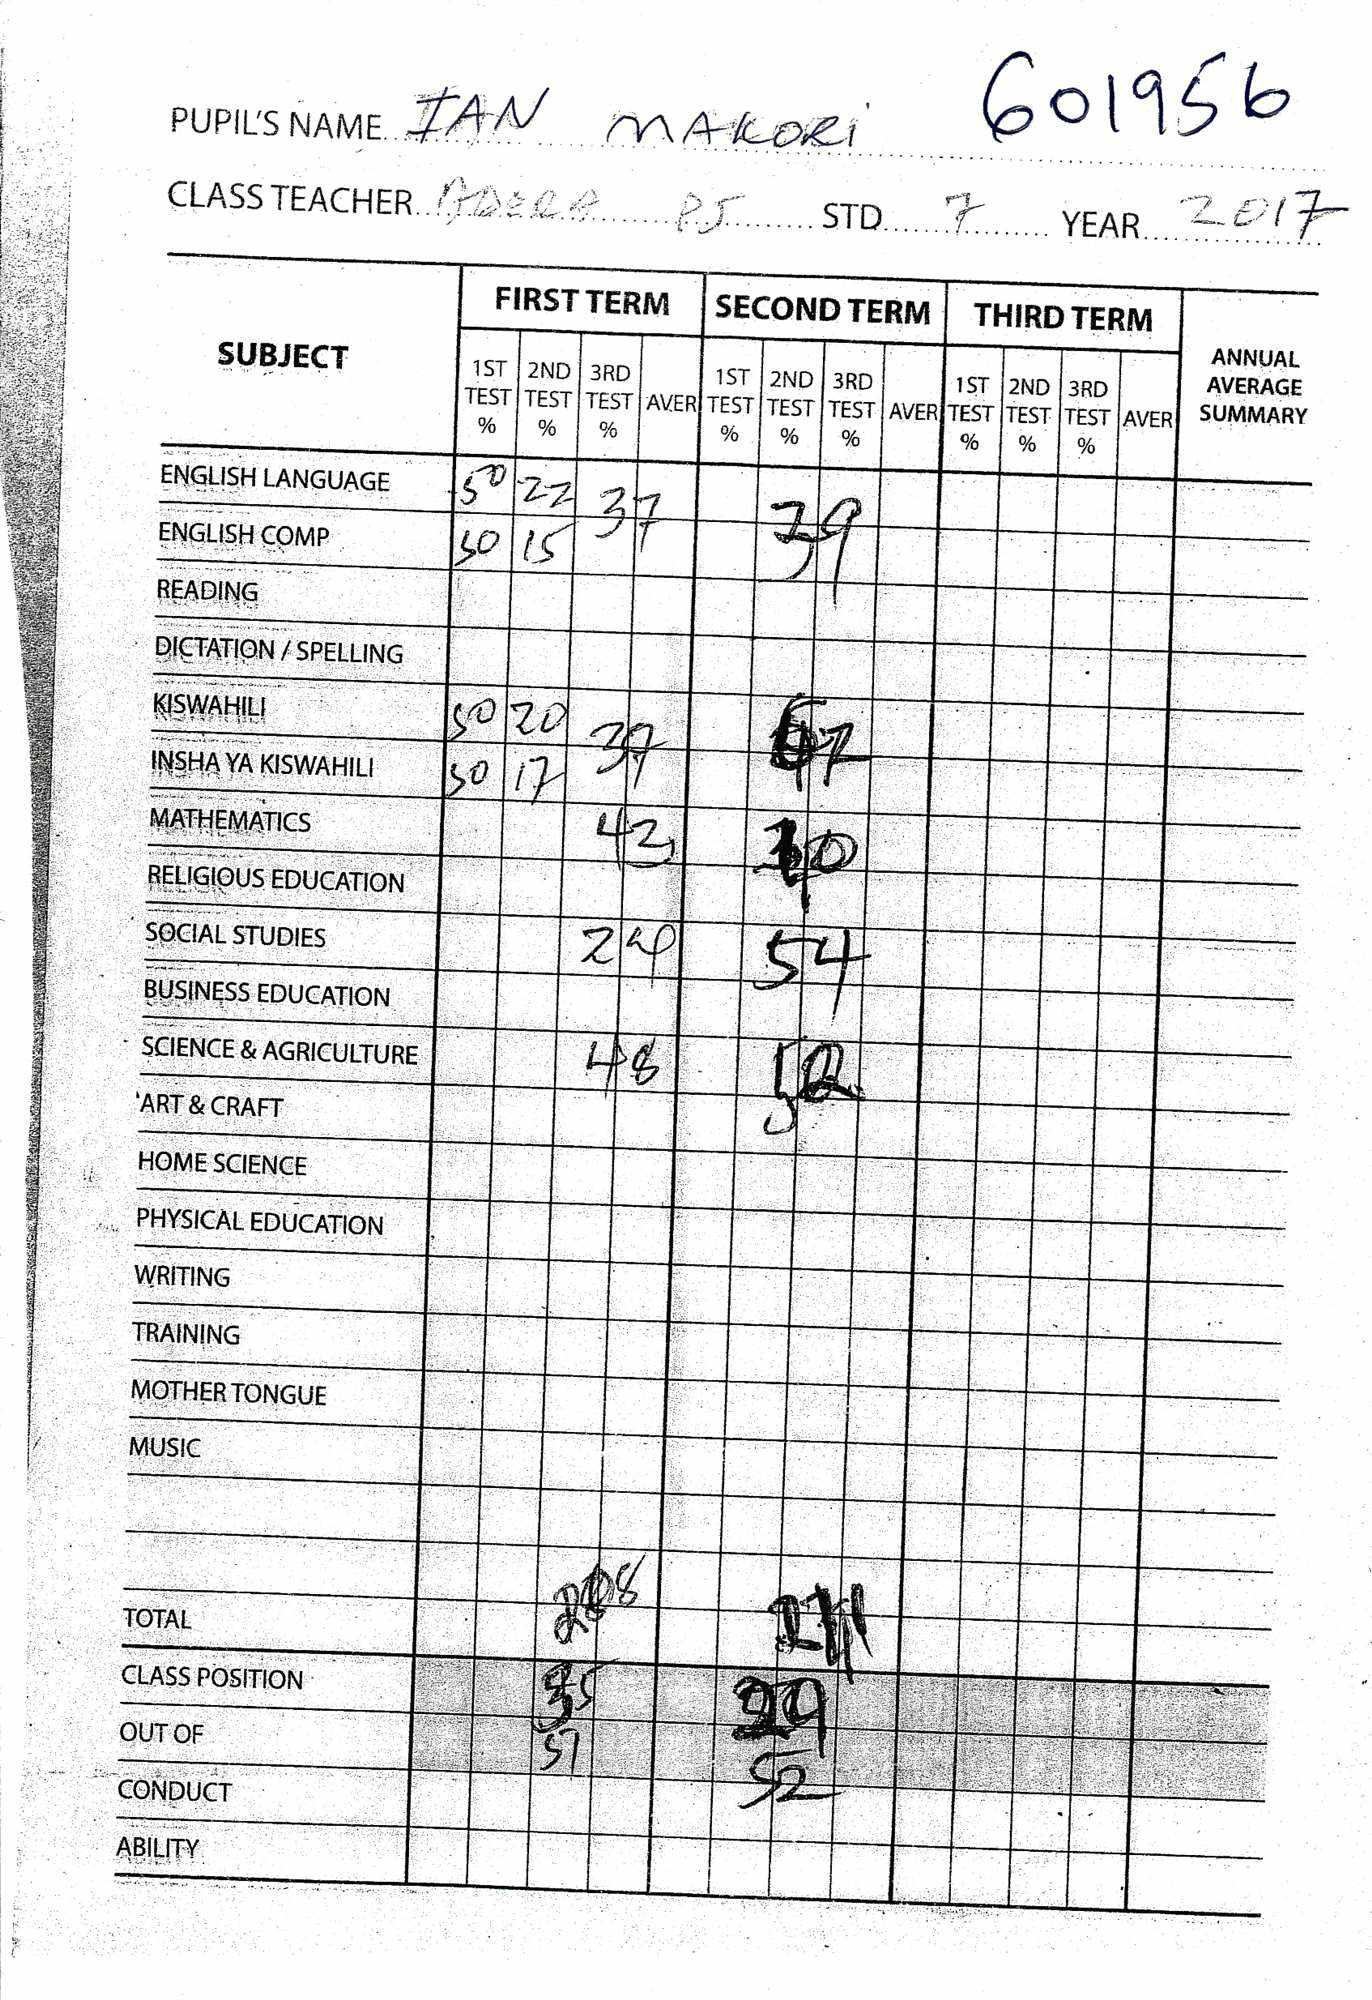 601956
PUPIL'S NAME IAN MAKORI
CLASS TEACHER PJ STD 7 YEAR 2017
SUBJECT FIRST TERM SECOND TERM THIRD TERM ANNUAL AVERAGE SUMMARY
1ST TEST % 2ND TEST % 3RD TEST % AVER 1ST TEST % 2ND TEST % 3RD TEST % AVER 1ST TEST % 2ND TEST % 3RD TEST % AVER
ENGLISH LANGUAGE 50 22 37 39
ENGLISH COMP 50 15
READING
DICTATION / SPELLING
KISWAHILI 50 20 37
INSHA YA KISWAHILI 50 17
MATHEMATICS 42
RELIGIOUS EDUCATION
SOCIAL STUDIES 24 54
BUSINESS EDUCATION
SCIENCE & AGRICULTURE 48 52
ART & CRAFT
HOME SCIENCE
PHYSICAL EDUCATION
WRITING
TRAINING
MOTHER TONGUE
MUSIC
TOTAL
CLASS POSITION 35 29
OUT OF 51 52
CONDUCT
ABILITY